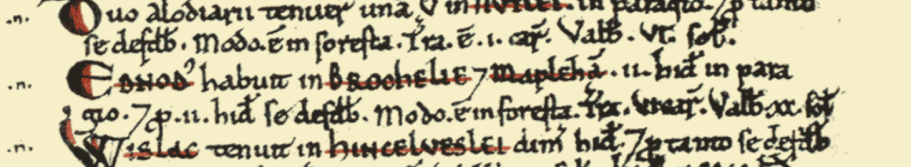 .n. Duo alodiarii tenuer̄ una ꝟ in. in paragio. 7 p tanto
se defdb̄. Modo. ē in foresta. T̄ra. ē. i. car̄. Valb̄. VI. sol̄.
.n. EDNOD' habuit in BROCHELIE 7 Maplehā. ii. hid̄ in para
gio. 7 p. ii. hid̄ se defdb̄. Modo. ē in foresta. T̄ra. car̄. Valb̄. xx. sol̄
.n. WISLAC tenuit in HINCELVESLEI dim̄ hid̄. 7 p tanto se defdb̄